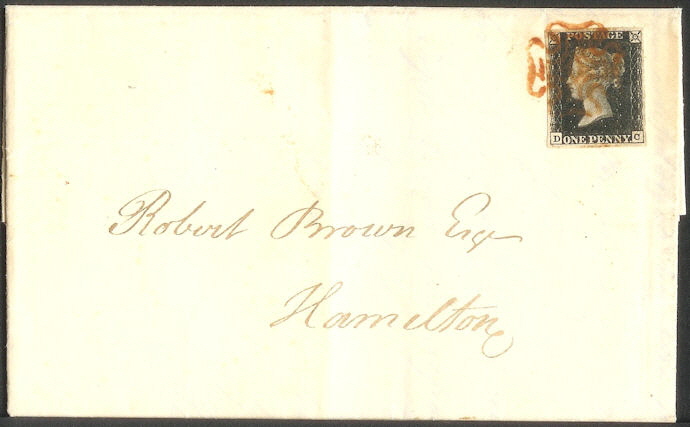 POSTAGE
D ONE PENNY C
Robert Brown Esqr
Hamilton